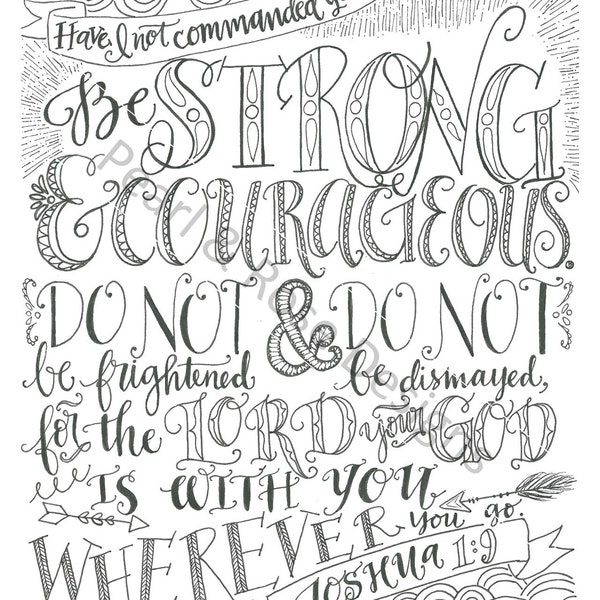 Have I not commanded y
Be STRONG
& COURAGEOUS.
DO NOT & DO NOT
be frightened be dismayed,
for the LORD your GOD
IS WITH YOU
WHEREVER you go.
JOSHUA 1:9
Pearl & Rose Designs